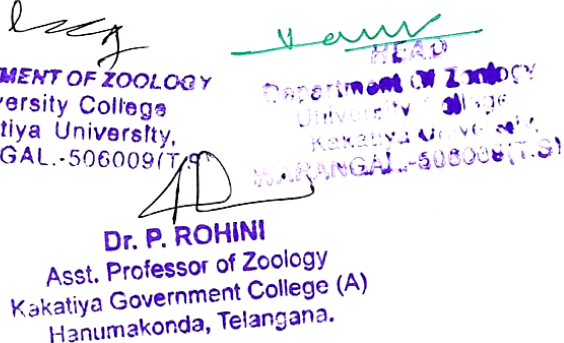 MENT OF ZOOLOGY
ersity College
tiya University,
GAL.-506009(T.S)
HEAD
Department Of Zoology
University College
Kakatiya University,
WARANGAL.-506009(T.S)
Dr. P. ROHINI
Asst. Professor of Zoology
Kakatiya Government College (A)
Hanumakonda, Telangana.